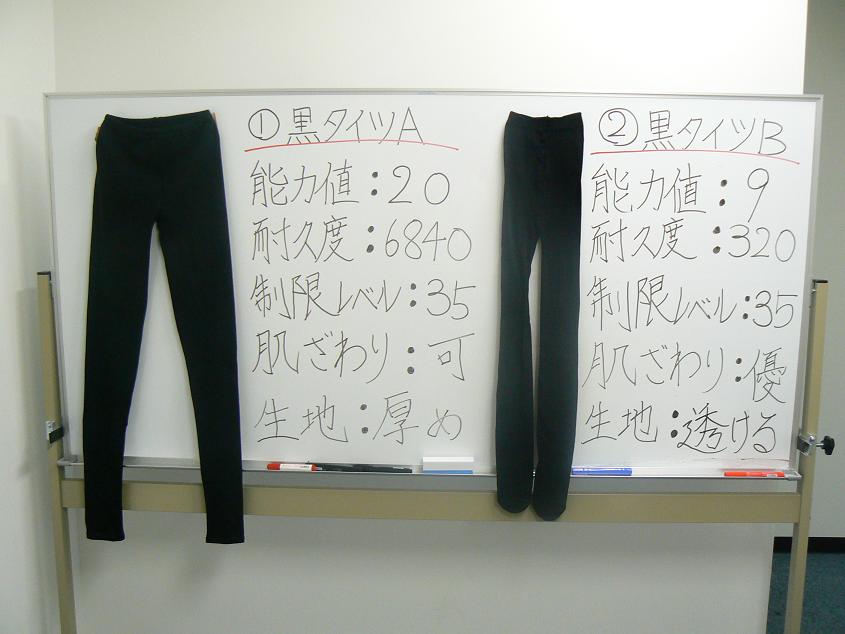 ①黒タイツA
能力値:20
耐久度:6840
制限レベル:35
肌ざわり:可
生地:厚め
②黒タイツB
能力値:9
耐久度:320
制限レベル:35
肌ざわり:優
生地:透ける